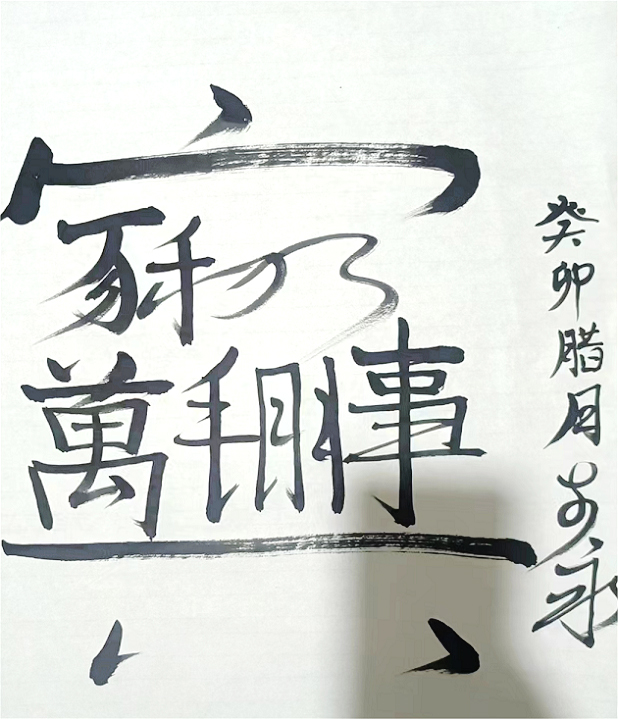 家和萬事興
癸卯腊月永